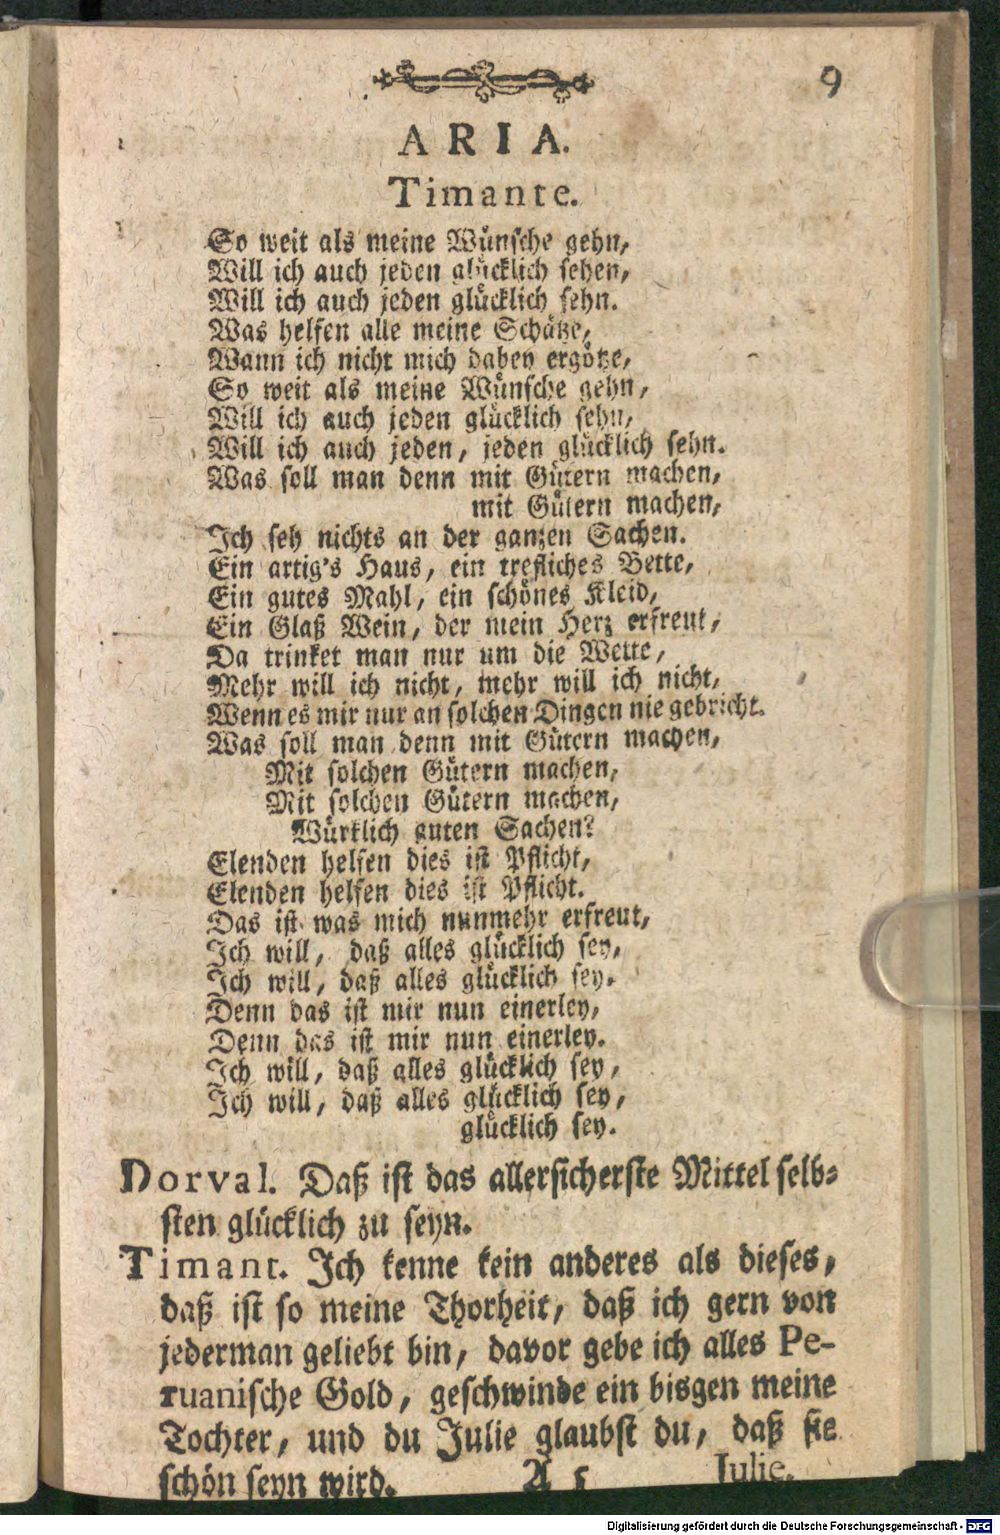 9
ARIA.
Timante.
So weit als meine Wünsche gehn,
Will ich auch jeden glücklich sehen,
Will ich auch jeden glücklich sehn.
Was helfen alle meine Schätze,
Wann ich nicht mich dabey ergötze,
So weit als meine Wünsche gehn,
Will ich auch jeden glücklich sehn,
Will ich auch jeden, jeden glücklich sehn.
Was soll man denn mit Gütern machen,
mit Gütern machen,
Ich seh nichts an der ganzen Sachen.
Ein artig's Haus, ein trefliches Bette,
Ein gutes Mahl, ein schönes Kleid,
Ein Glaß Wein, der mein Herz erfreut,
Da trinket man nur um die Wette,
Mehr will ich nicht, mehr will ich nicht,
Wenn es mir nur an solchen Dingen nie gebricht.
Was soll man denn mit Gütern machen,
Mit solchen Gütern machen,
Mit solchen Gütern machen,
Würklich guten Sachen?
Elenden helfen dies ist Pflicht,
Elenden helfen dies ist Pflicht.
Das ist was mich nunmehr erfreut,
Ich will, daß alles glücklich sey,
Ich will, daß alles glücklich sey.
Denn das ist mir nun einerley,
Denn das ist mir nun einerley.
Ich will, daß alles glücklich sey,
Ich will, daß alles glücklich sey,
glücklich sey.
Dorval. Daß ist das allersicherste Mittel selb-
sten glücklich zu seyn.
Timant. Ich kenne kein anderes als dieses,
daß ist so meine Thorheit, daß ich gern von
jederman geliebt bin, davor gebe ich alles Pe-
ruanische Gold, geschwinde ein bisgen meine
Tochter, und du Julie glaubst du, daß sie
schön seyn wird. A 5 Julie.
Digitalisierung gefördert durch die Deutsche Forschungsgemeinschaft - DFG